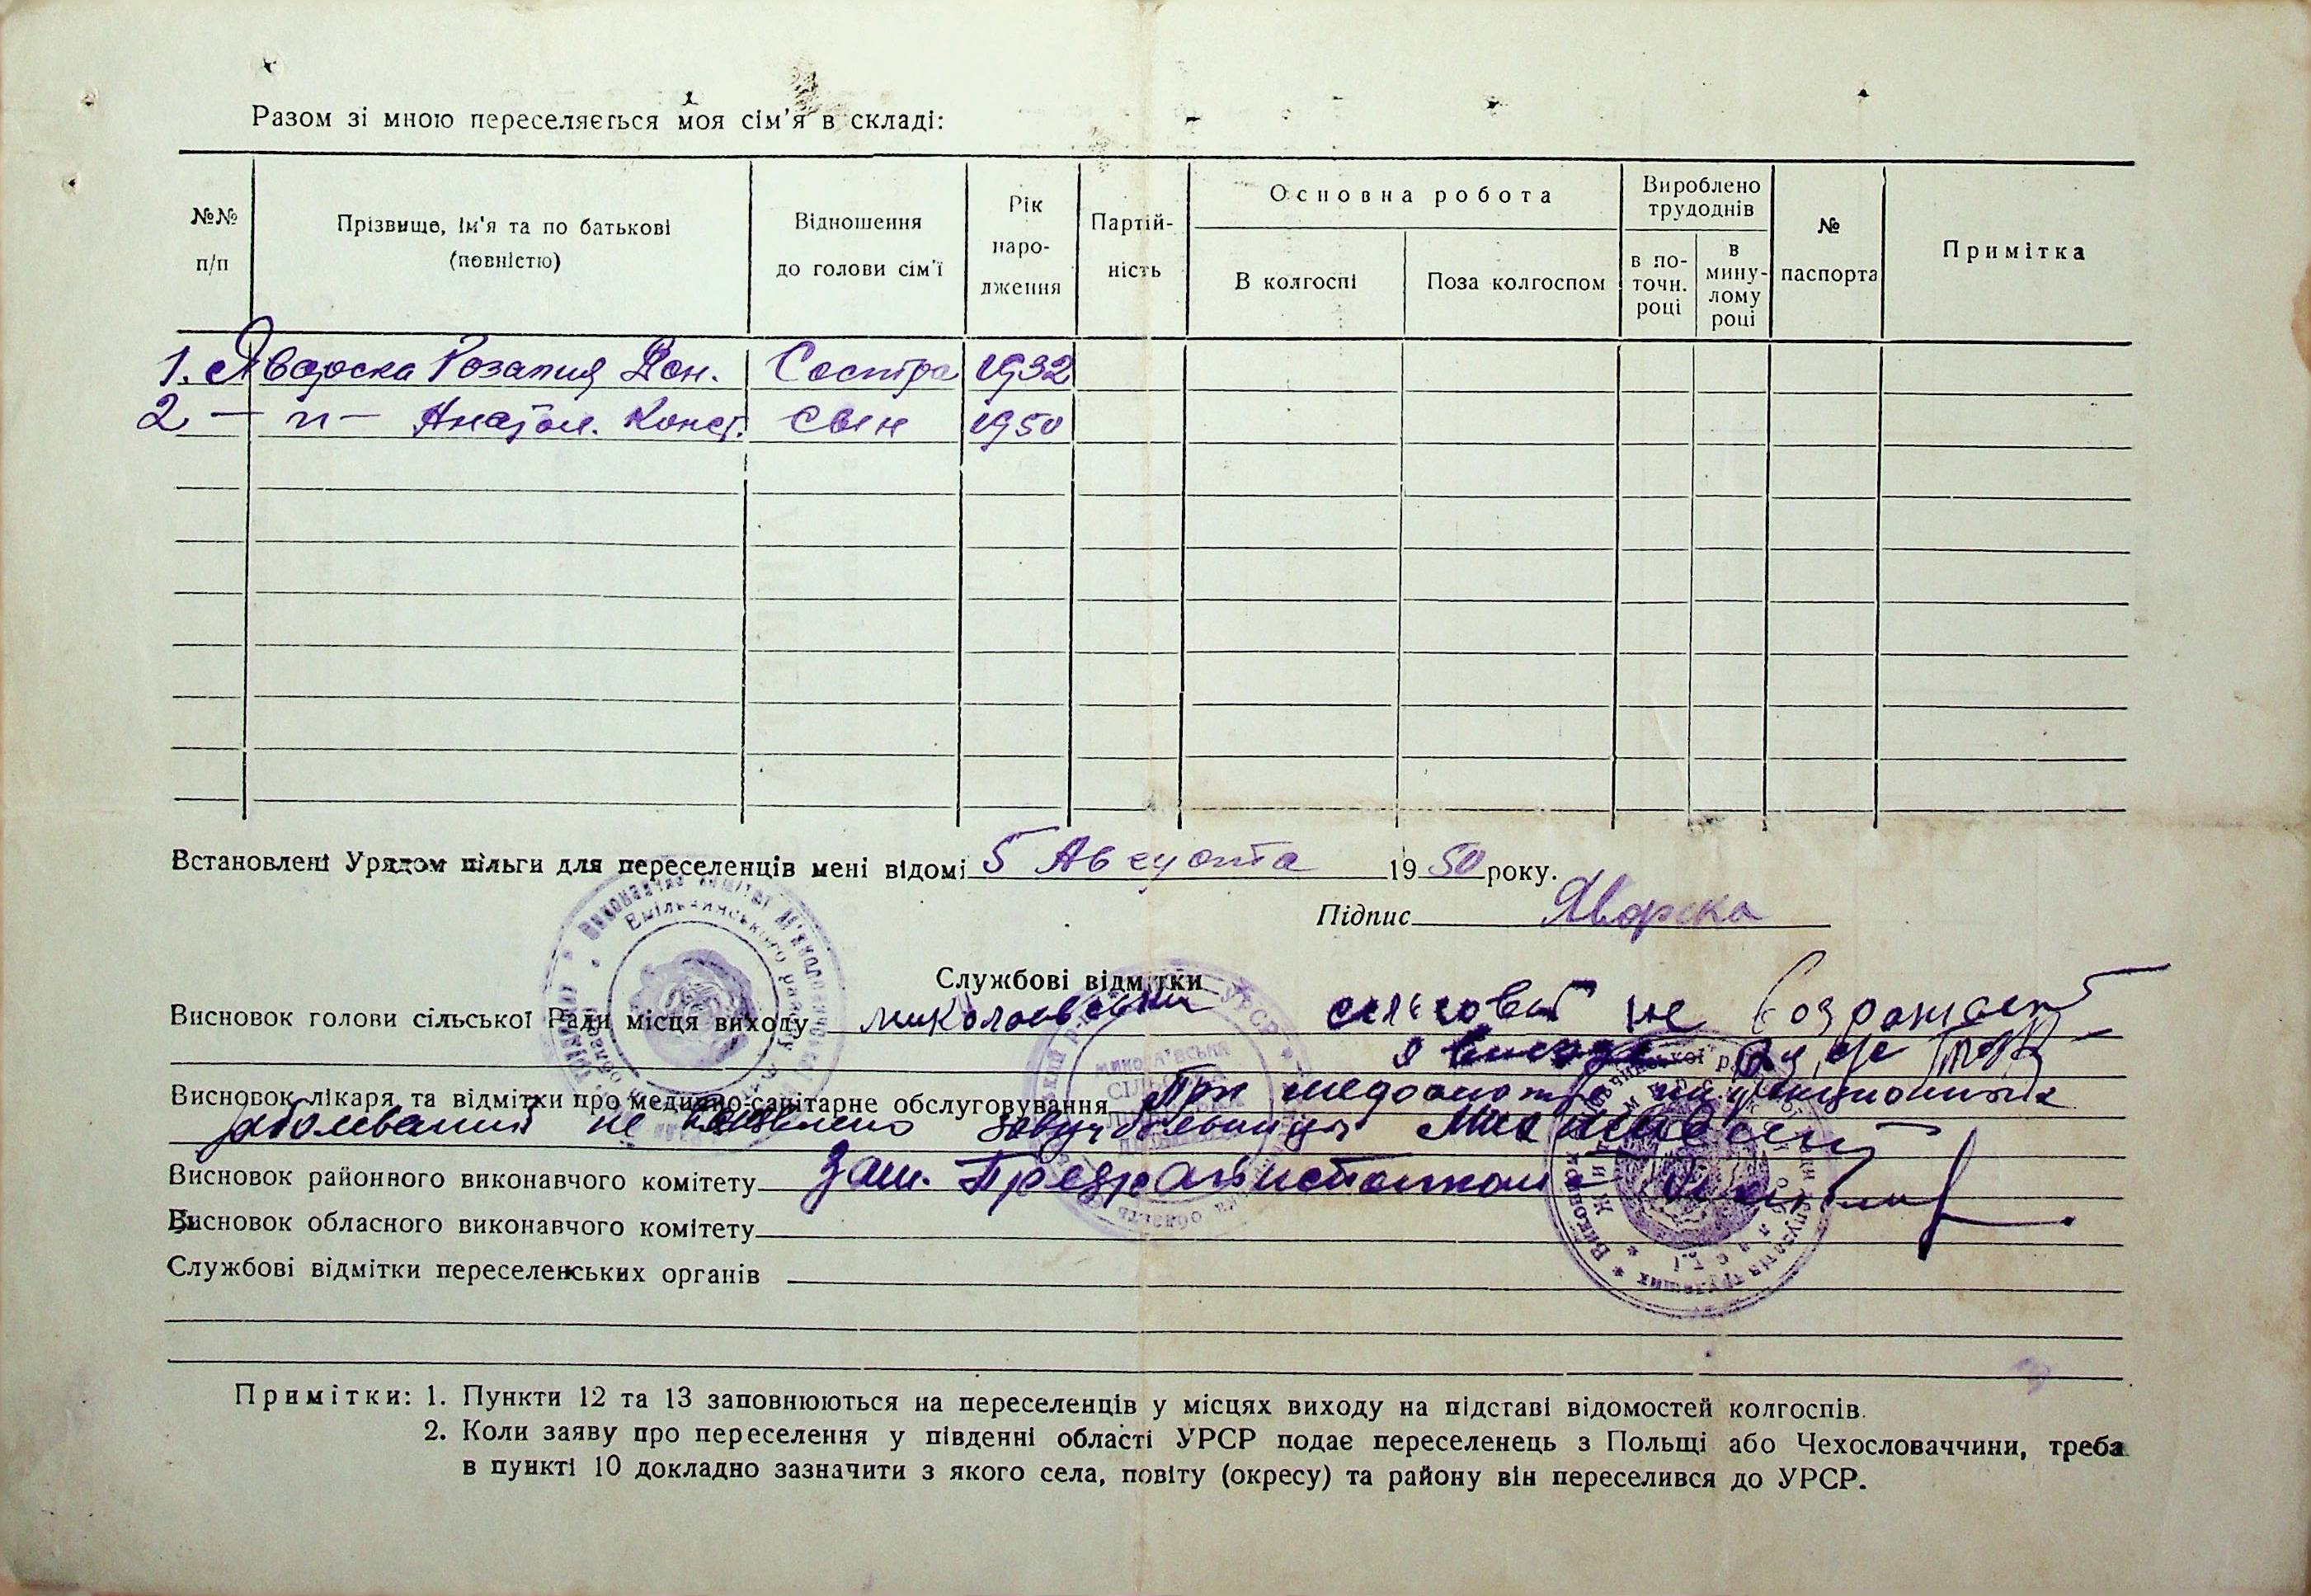 Разом зі мною переселяється моя сім'я в складі:
№№ п/п
Прізвище, ім'я та по батькові (повністю)
Відношення до голови сім'ї
Рік народження
Партійність
Основна робота
В колгоспі
Поза колгоспом
Вироблено трудоднів
в поточн. році
в минулому році
№ паспорта
Примітка
1. Яворска Розалия Сестра 1932
2 — п — Анатол. Конст. Сын 1950
Встановлені Урядом пільги для переселенців мені відомі 5 Августа 1950 року.
Підпис Яворска
Службові відмітки
Висновок голови сільської Ради місця виходу Миколаевский сельсовет не возражает
Висновок лікаря та відмітки про медично-санітарне обслуговування При медосмотре инфекционных
заболеваний не выявлено
Висновок районного виконавчого комітету Зам. Пред. райисполкома
Висновок обласного виконавчого комітету
Службові відмітки переселенських органів
Примітки: 1. Пункти 12 та 13 заповнюються на переселенців у місцях виходу на підставі відомостей колгоспів.
2. Коли заяву про переселення у південні області УРСР подає переселенець з Польщі або Чехословаччини, треба
в пункті 10 докладно зазначити з якого села, повіту (окресу) та району він переселився до УРСР.